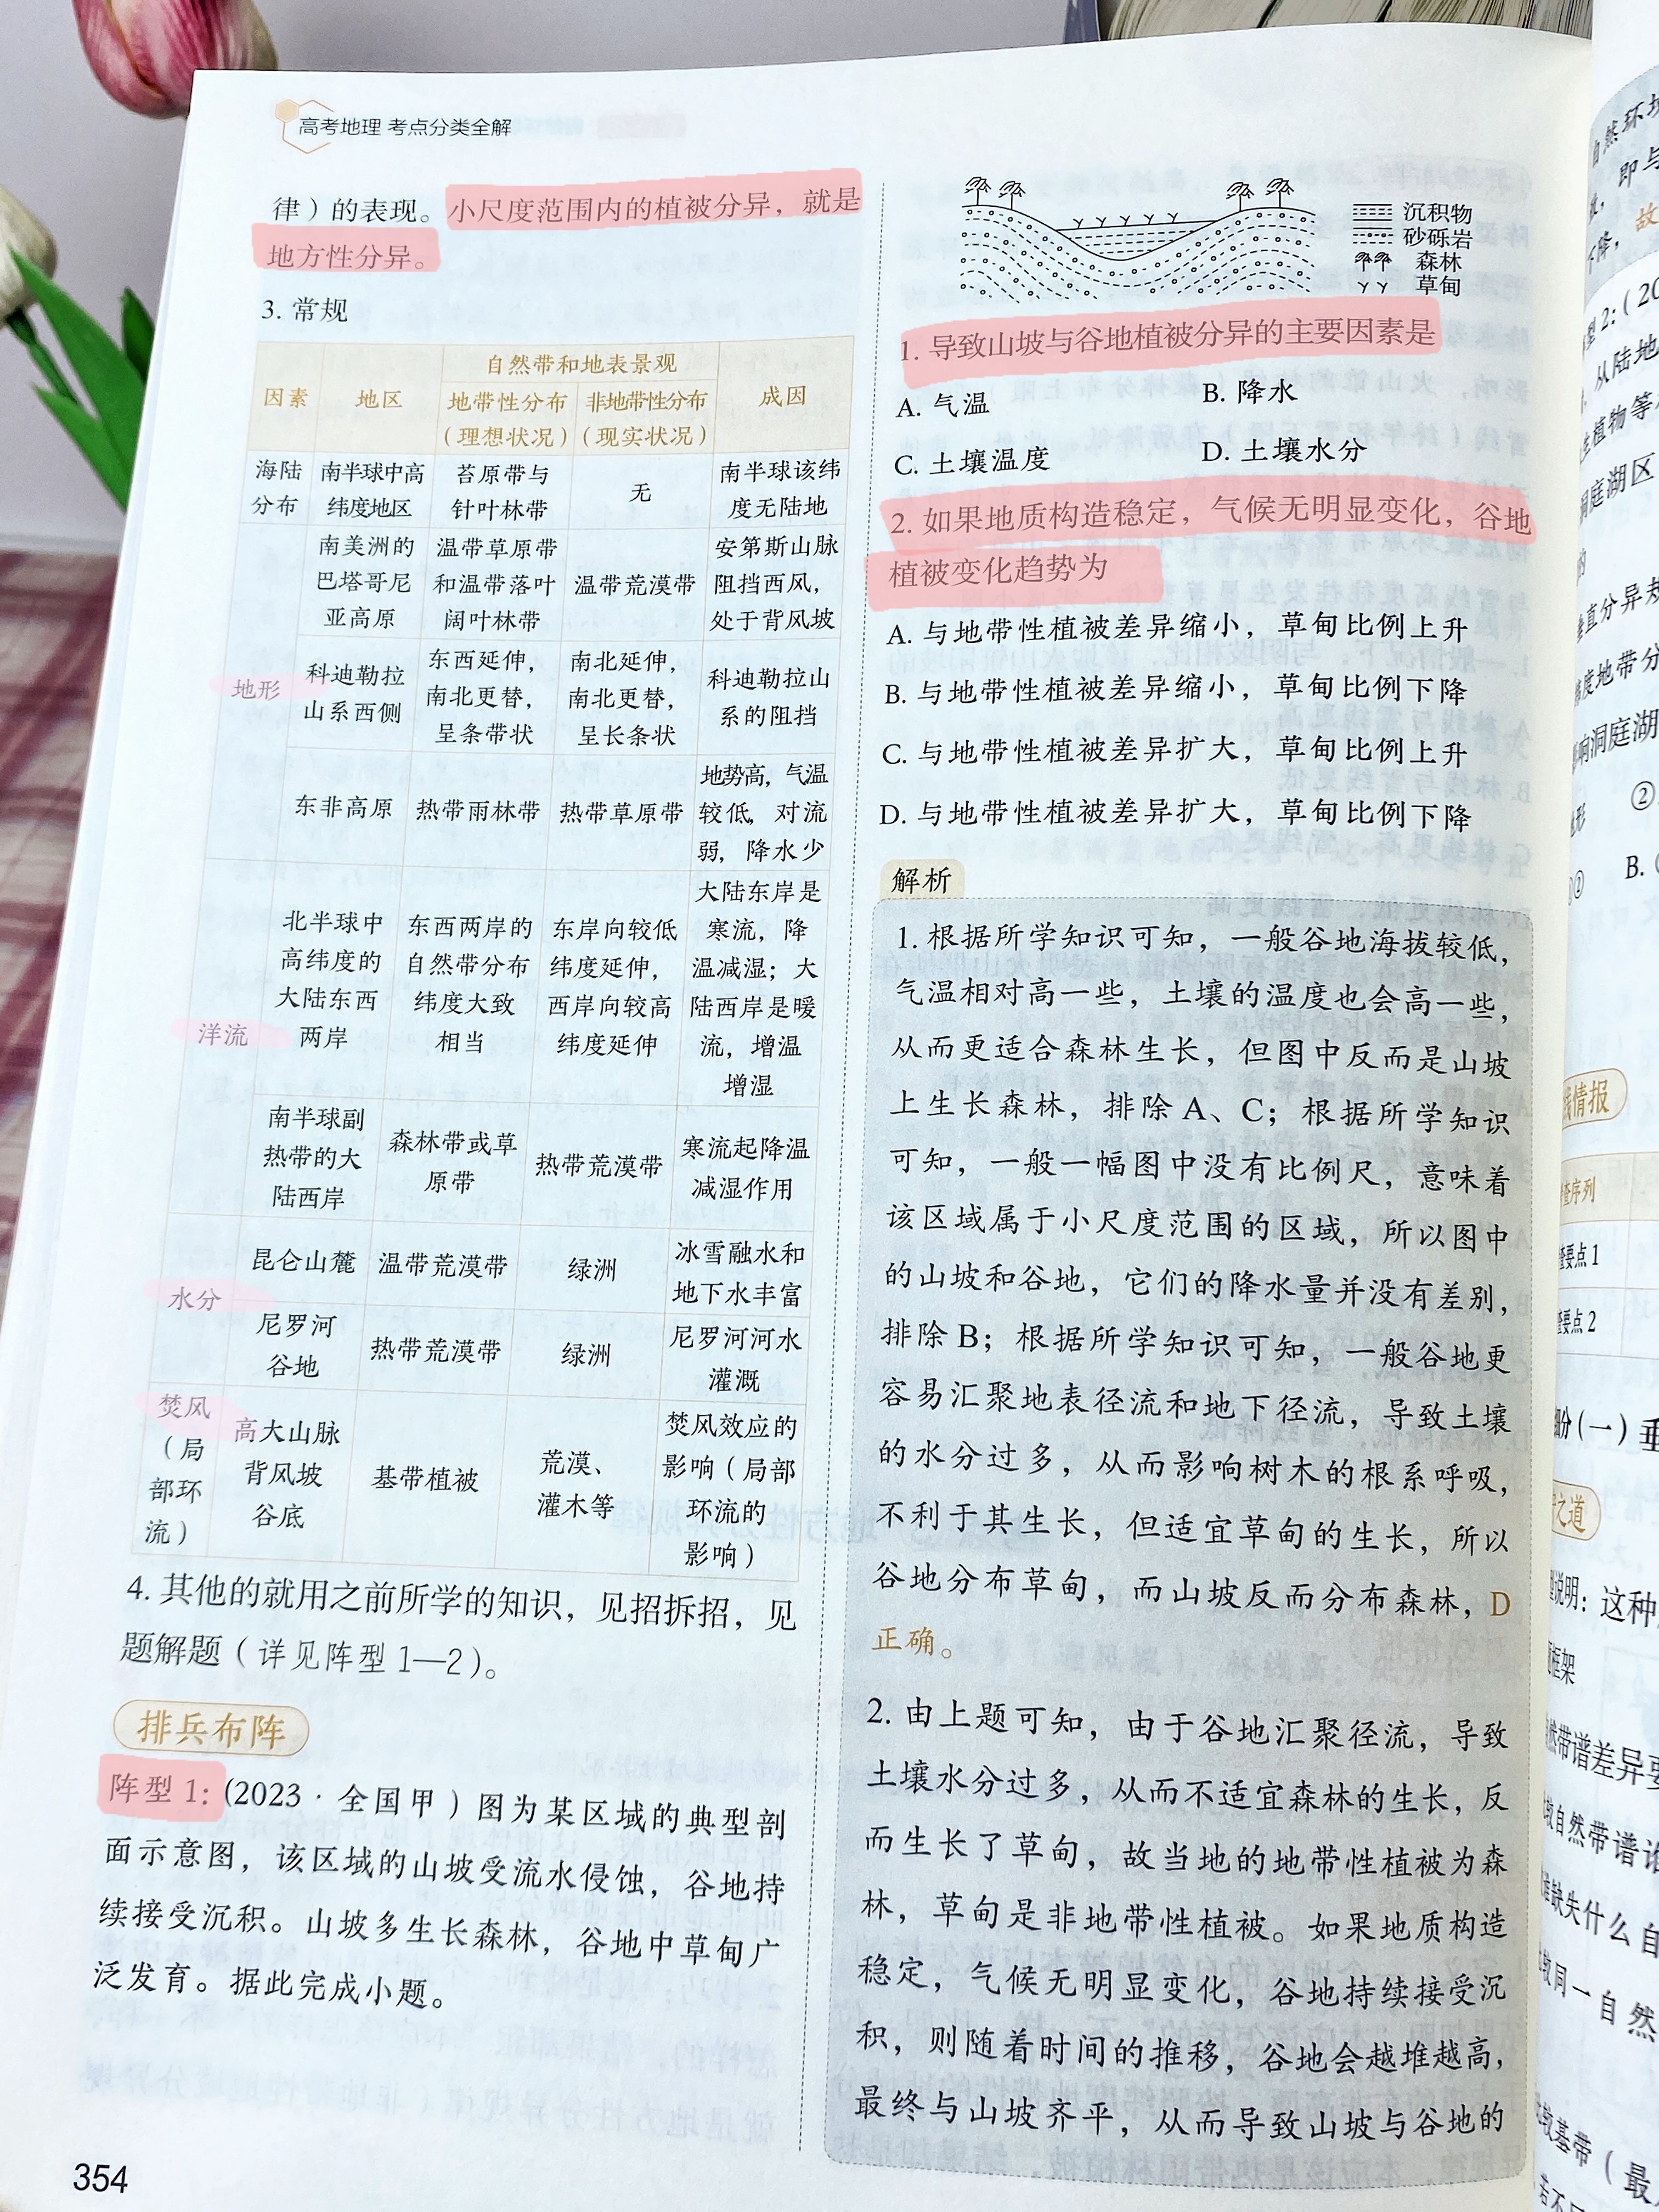 高考地理 考点分类全解
律）的表现。小尺度范围内的植被分异，就是
地方性分异。
3. 常规
因素 地区 自然带和地表景观 成因
地带性分布（理想状况） 非地带性分布（现实状况）
海陆分布 南半球中高纬度地区 苔原带与针叶林带 无 南半球该纬度无陆地
地形 南美洲的巴塔哥尼亚高原 温带草原带和温带落叶阔叶林带 温带荒漠带 安第斯山脉阻挡西风，处于背风坡
科迪勒拉山系西侧 东西延伸，南北更替，呈条带状 南北延伸，南北更替，呈长条状 科迪勒拉山系的阻挡
东非高原 热带雨林带 热带草原带 地势高，气温较低，对流弱，降水少
洋流 北半球中高纬度的大陆东西两岸 东西两岸的自然带分布纬度大致相当 东岸向较低纬度延伸，西岸向较高纬度延伸 大陆东岸是寒流，降温减湿；大陆西岸是暖流，增温增湿
南半球副热带的大陆西岸 森林带或草原带 热带荒漠带 寒流起降温减湿作用
水分 昆仑山麓 温带荒漠带 绿洲 冰雪融水和地下水丰富
尼罗河谷地 热带荒漠带 绿洲 尼罗河河水灌溉
焚风（局部环流） 高大山脉背风坡谷底 基带植被 荒漠、灌木等 焚风效应的影响（局部环流的影响）
4. 其他的就用之前所学的知识，见招拆招，见
题解题（详见阵型1—2）。
排兵布阵
阵型1：(2023·全国甲）图为某区域的典型剖
面示意图，该区域的山坡受流水侵蚀，谷地持
续接受沉积。山坡多生长森林，谷地中草甸广
泛发育。据此完成小题。
354
沉积物
砂砾岩
森林
草甸
1. 导致山坡与谷地植被分异的主要因素是
A. 气温 B. 降水
C. 土壤温度 D. 土壤水分
2. 如果地质构造稳定，气候无明显变化，谷地
植被变化趋势为
A. 与地带性植被差异缩小，草甸比例上升
B. 与地带性植被差异缩小，草甸比例下降
C. 与地带性植被差异扩大，草甸比例上升
D. 与地带性植被差异扩大，草甸比例下降
解析
1. 根据所学知识可知，一般谷地海拔较低，
气温相对高一些，土壤的温度也会高一些，
从而更适合森林生长，但图中反而是山坡
上生长森林，排除A、C；根据所学知识
可知，一般一幅图中没有比例尺，意味着
该区域属于小尺度范围的区域，所以图中
的山坡和谷地，它们的降水量并没有差别，
排除B；根据所学知识可知，一般谷地更
容易汇聚地表径流和地下径流，导致土壤
的水分过多，从而影响树木的根系呼吸，
不利于其生长，但适宜草甸的生长，所以
谷地分布草甸，而山坡反而分布森林，D
正确。
2. 由上题可知，由于谷地汇聚径流，导致
土壤水分过多，从而不适宜森林的生长，反
而生长了草甸，故当地的地带性植被为森
林，草甸是非地带性植被。如果地质构造
稳定，气候无明显变化，谷地持续接受沉
积，则随着时间的推移，谷地会越堆越高，
最终与山坡齐平，从而导致山坡与谷地的
自然环境
即与
型2：(20
从陆地
洞庭湖区
垂直分异规
响洞庭湖
B.
情报
查序列
查要点1
查要点2
细分(一) 垂
之道
说明：这种
框架
然带谱差异
自然带谱
缺失什么自
较同一自然
较基带（最